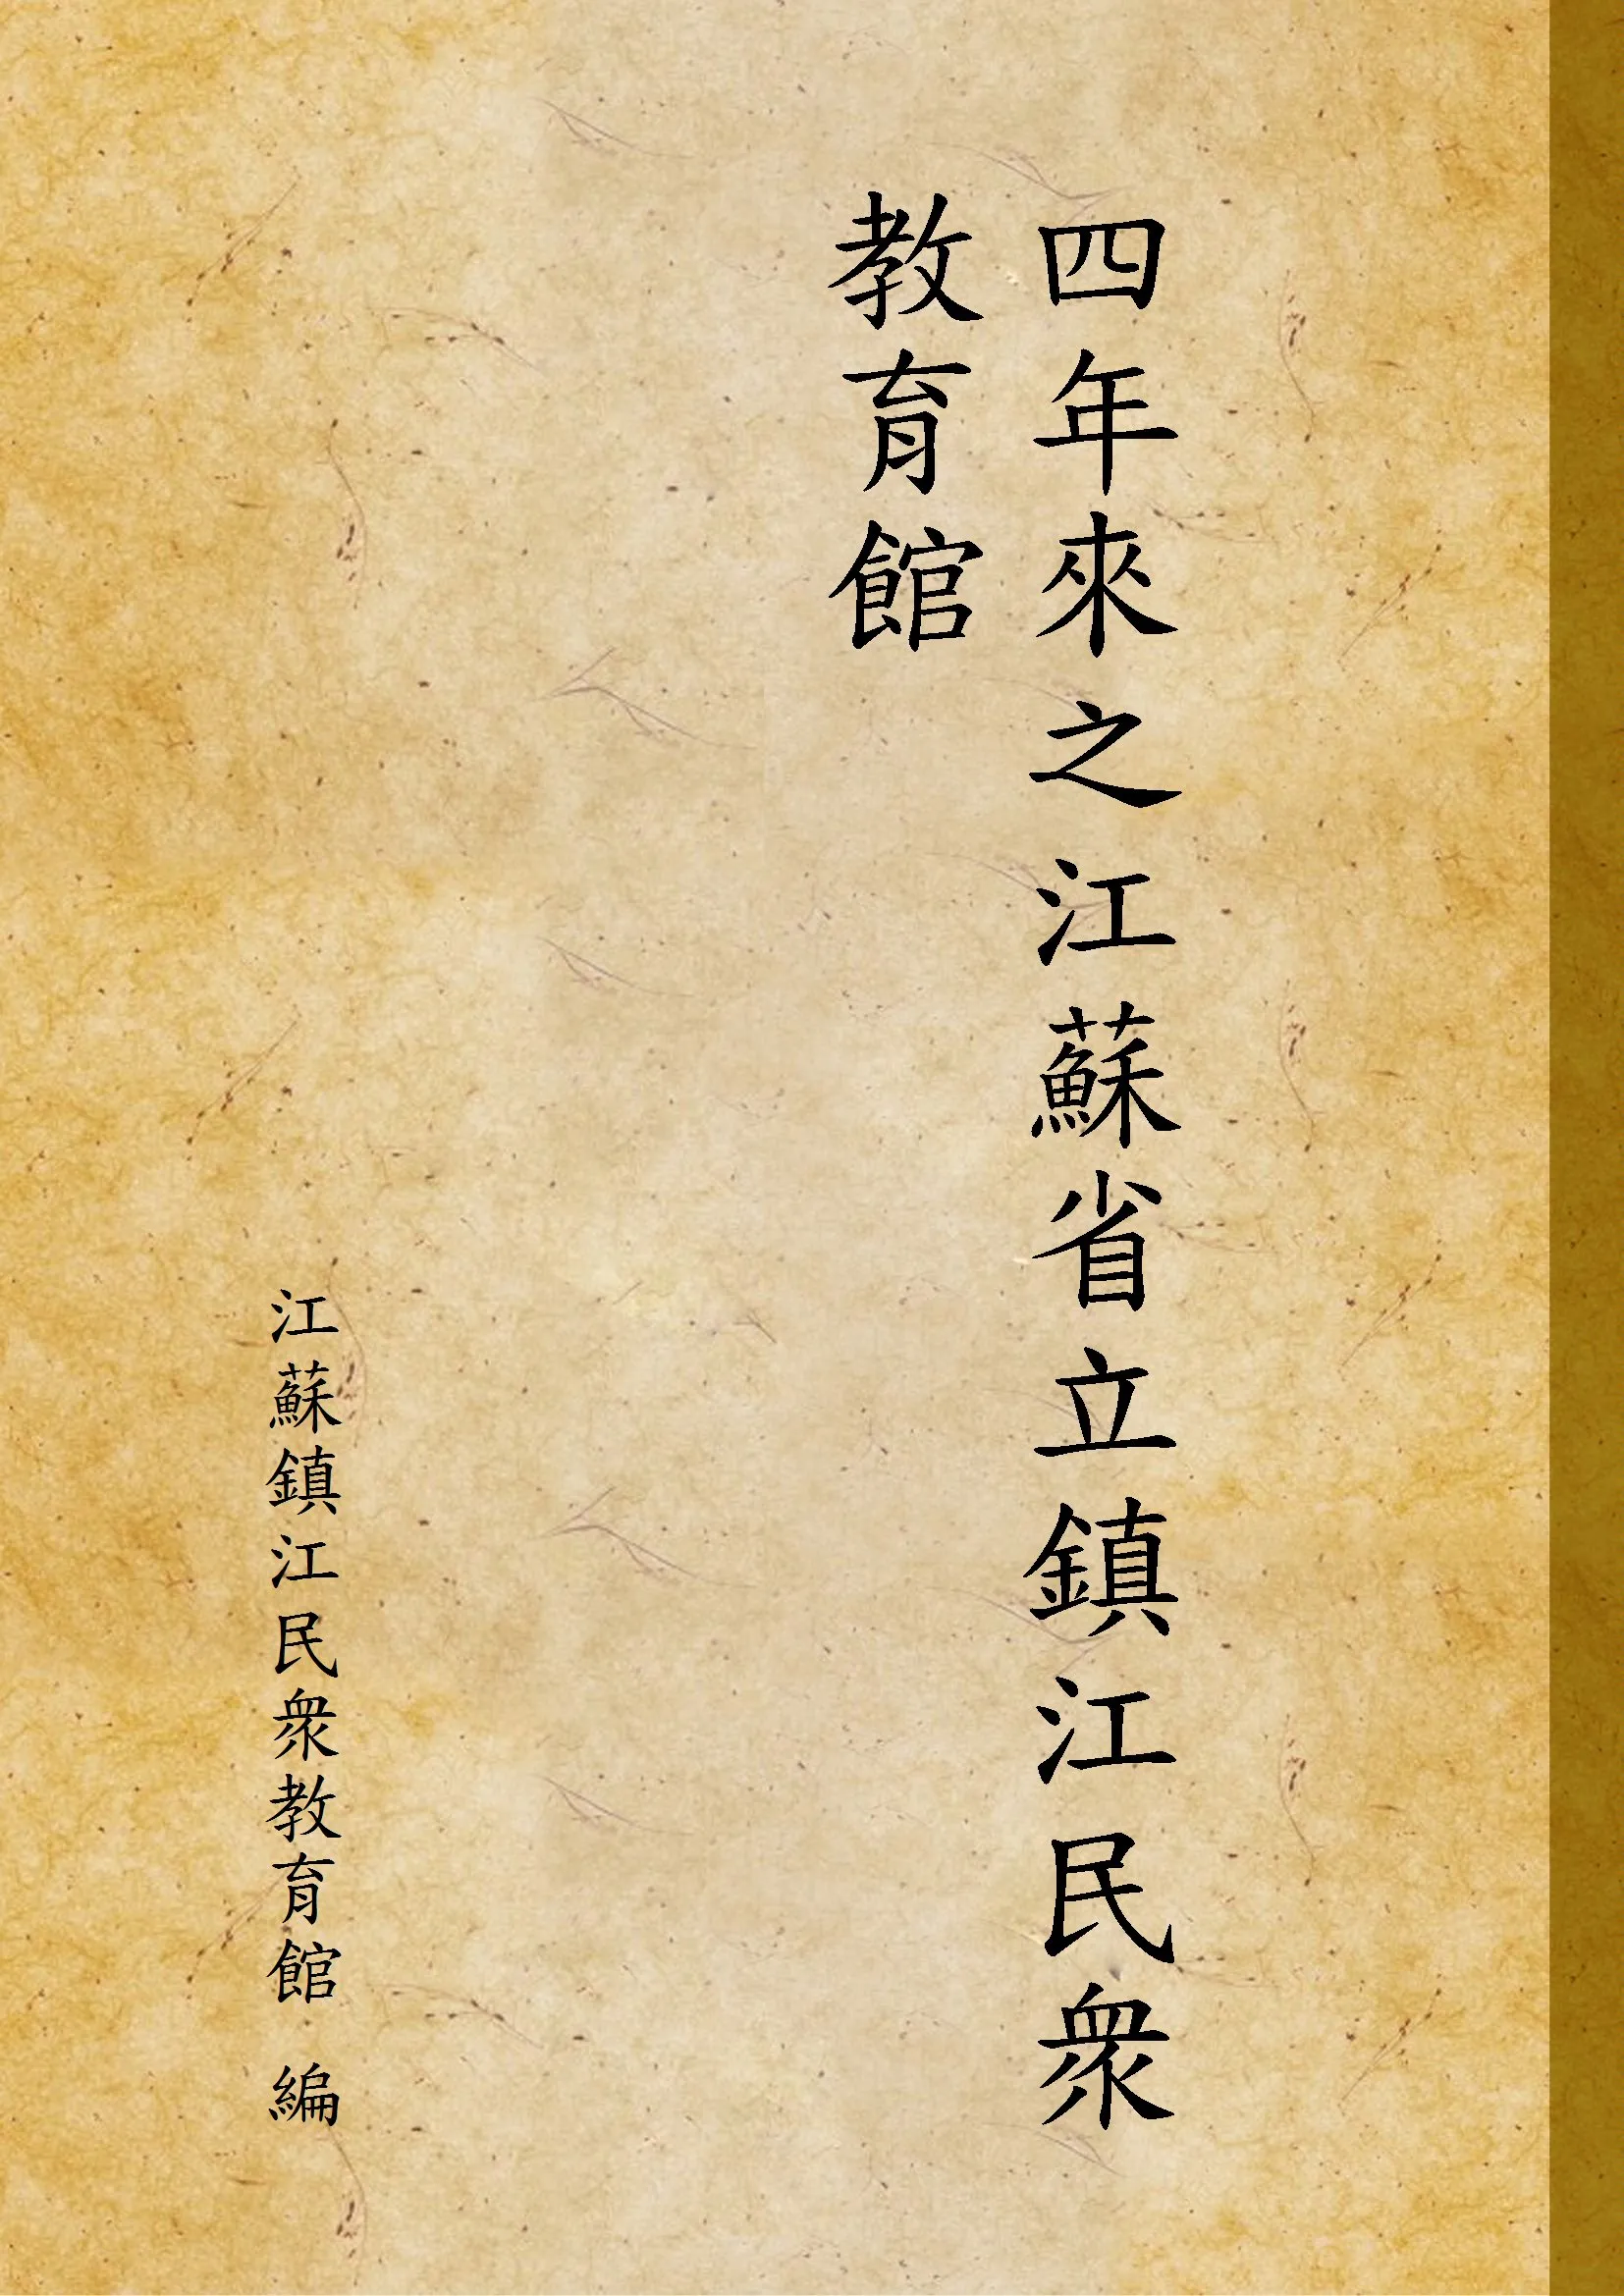 四年來之江蘇省立鎮江民眾
教育館
江蘇鎮江民眾教育館 編